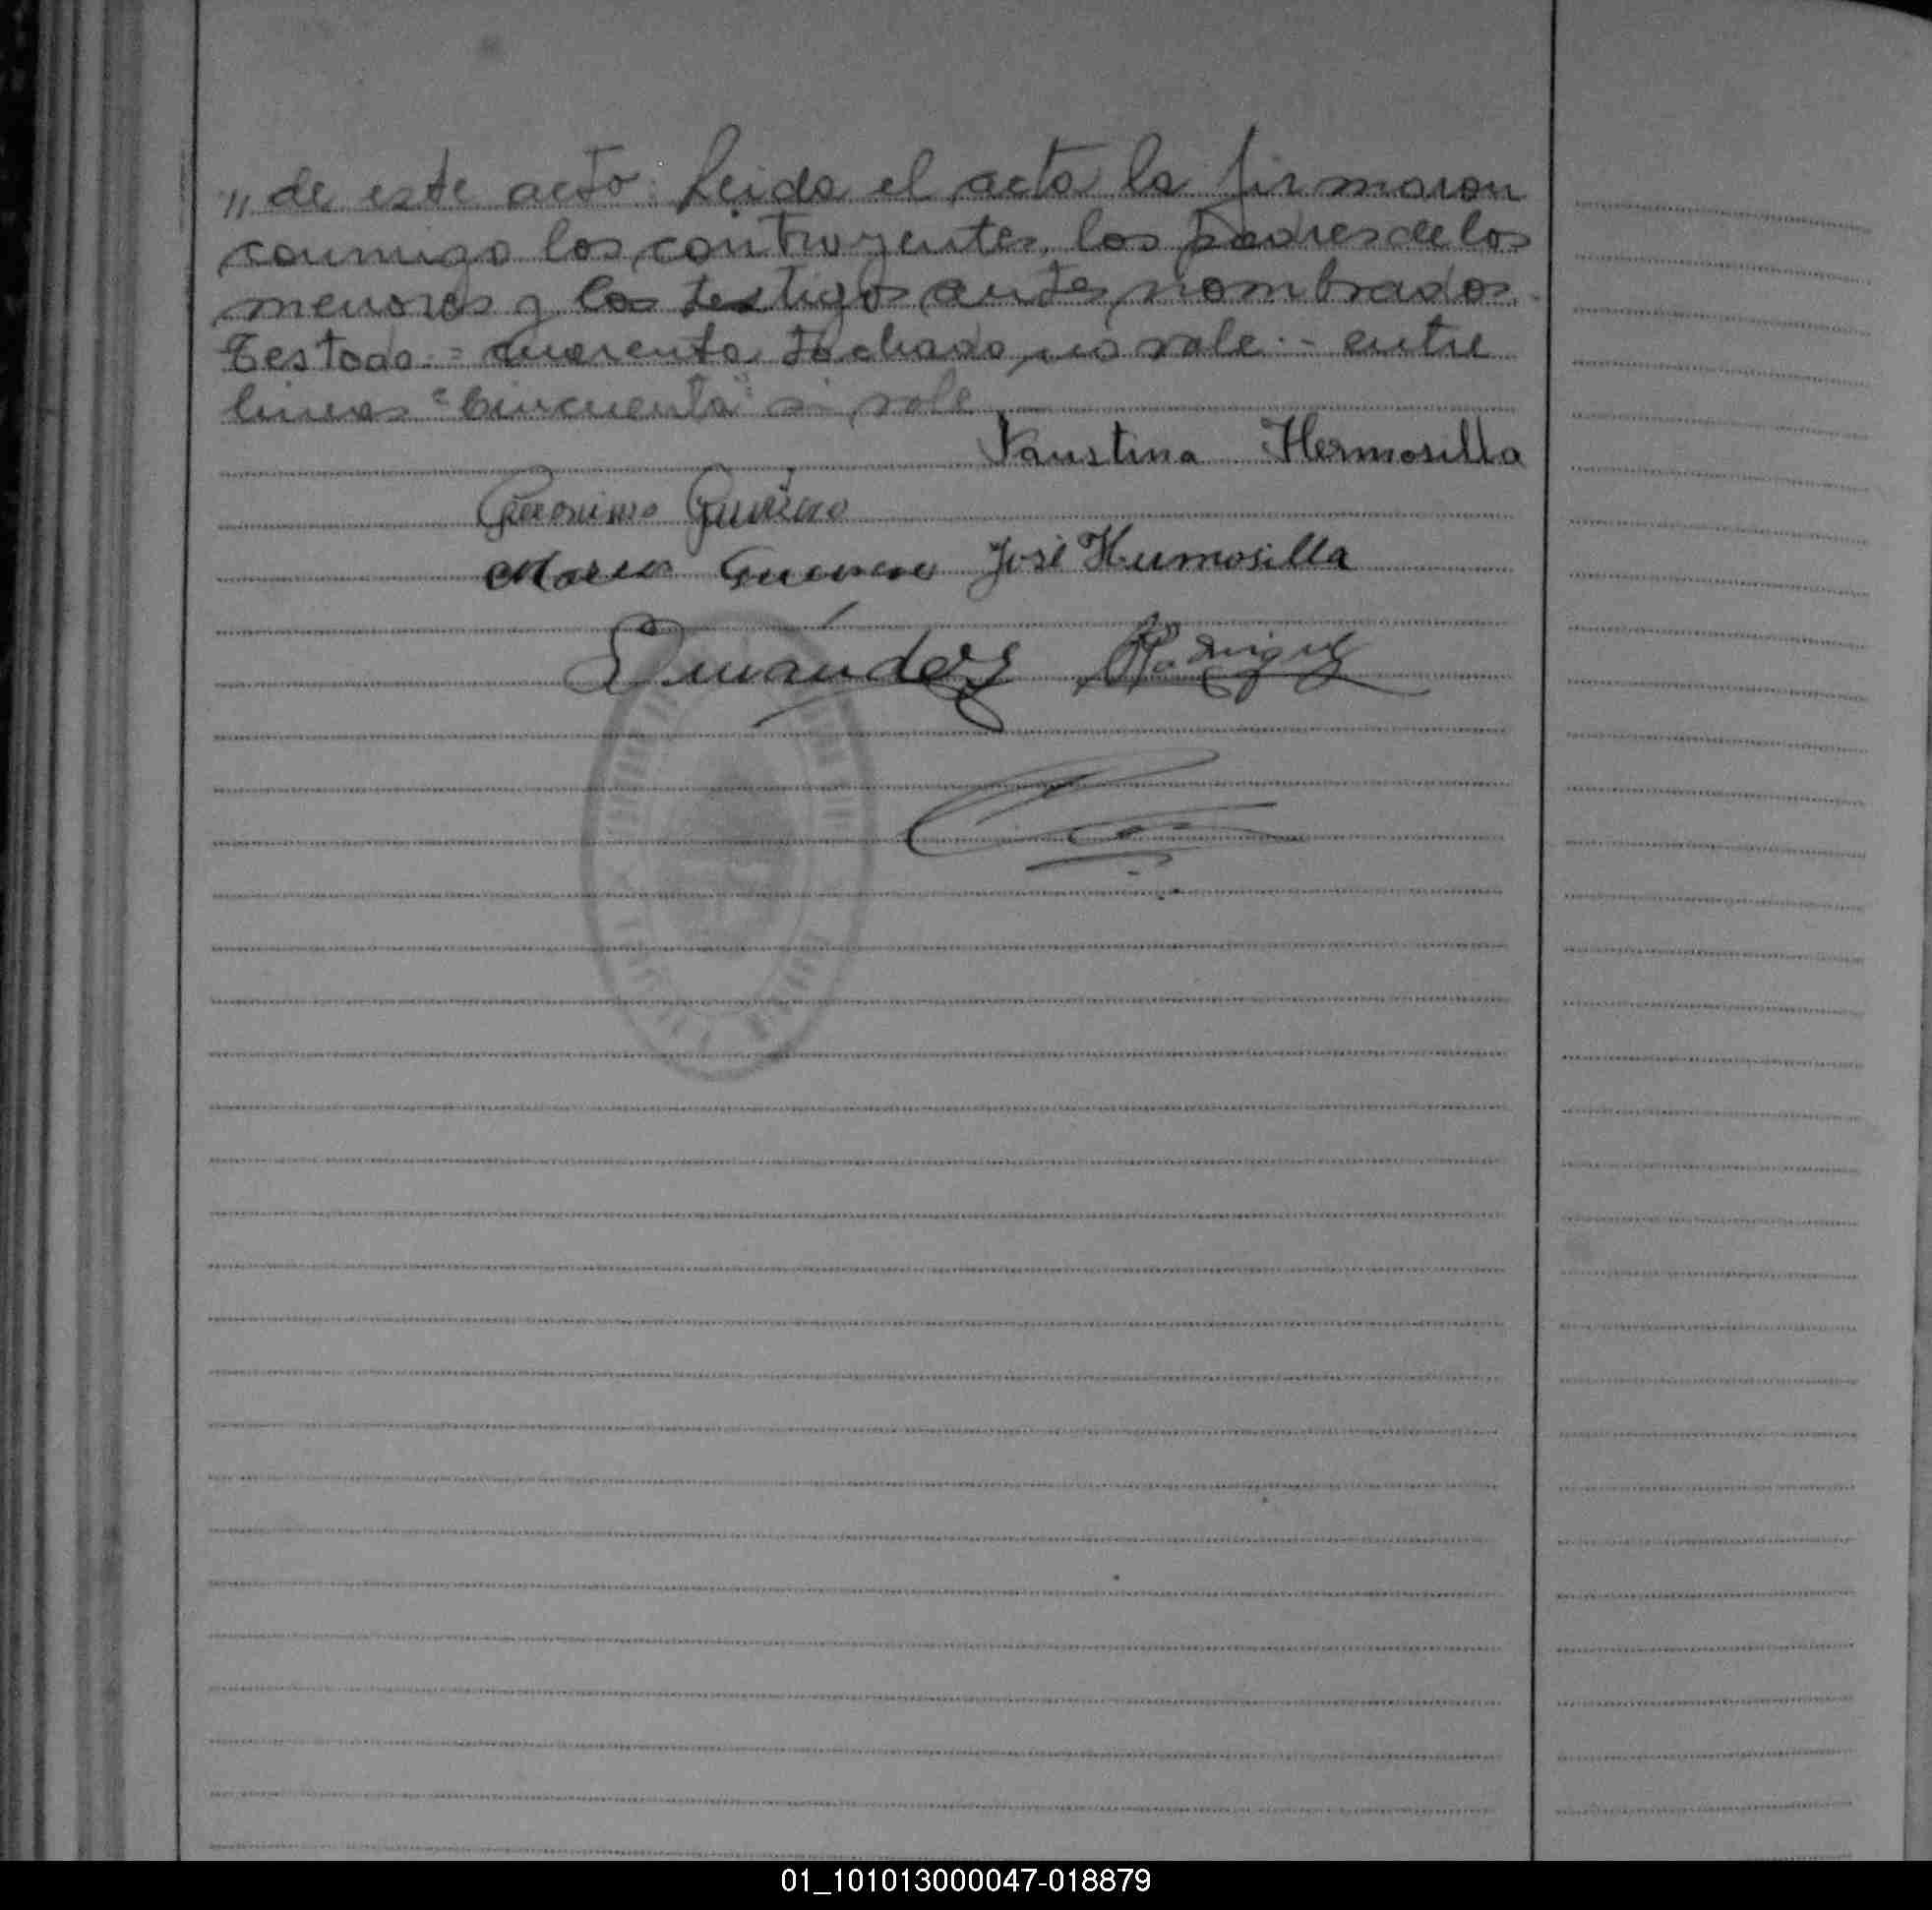 " de este acto. Leida el acta la firmaron
conmigo los contrayentes, los padres de los
menores y los testigos antes nombrados.
Testado = cuarenta tachado no vale. - entre
lineas "cincuenta" si vale
Faustina Hermosilla
Geronimo Guerrero
Guerrero José Hermosilla
Rodriguez
01_101013000047-018879